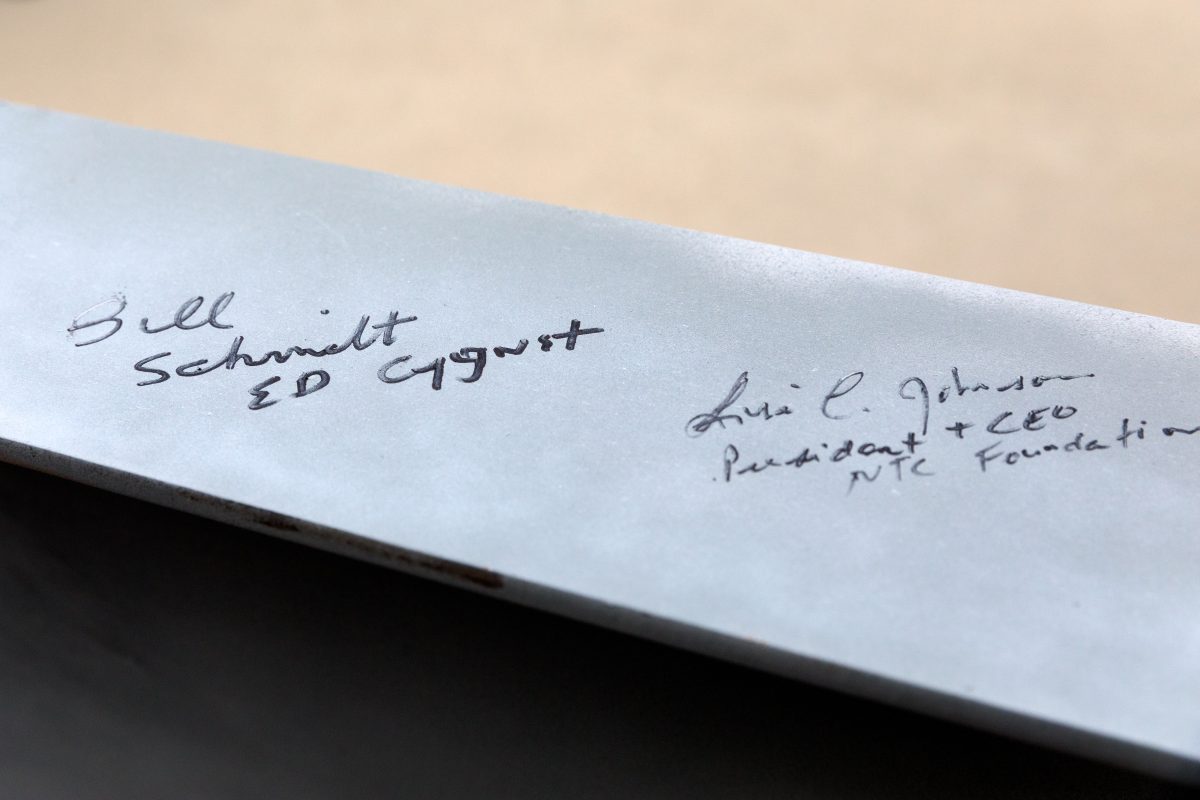 Bill
Schmidt
ED Cygnet
Lisa C. Johnson
President + CEO
NTC Foundation